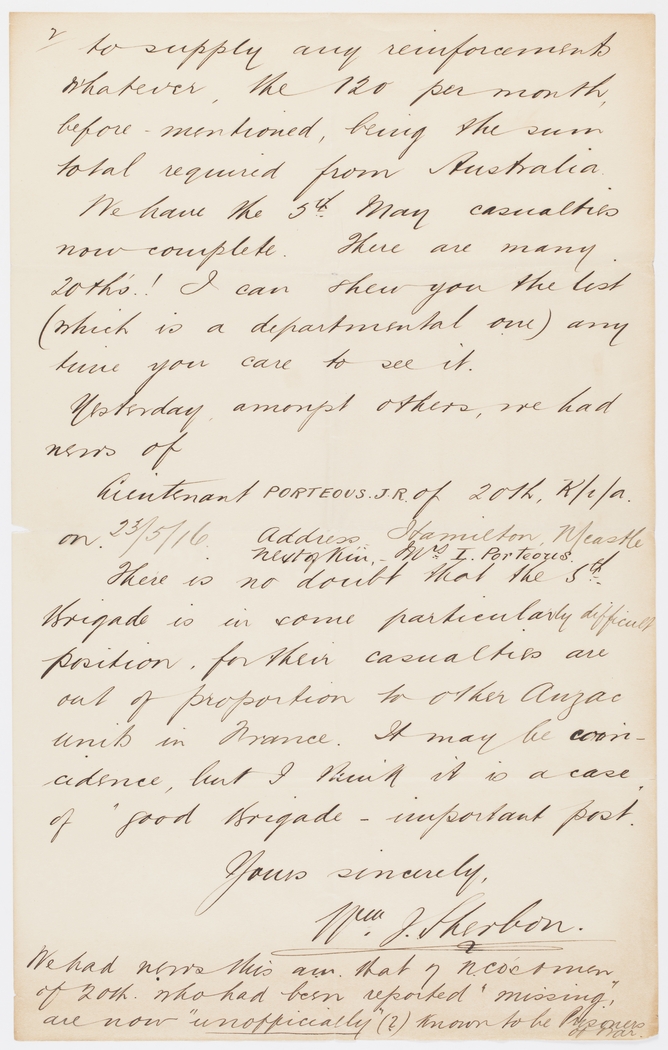 2
to supply any reinforcements
whatever, the 120 per month,
before-mentioned, being the sum
total required from Australia.
We have the 5th May casualties
now complete. There are many
20th's.! I can shew you the list
(which is a departmental one) any
time you care to see it.
Yesterday, amongst others, we had
news of
Lieutenant PORTEOUS. J.R. of 20th, K/i/a.
on 23/5/16. Address Hamilton, N/castle
next of kin, - Mrs I. Porteous.
There is no doubt that the 5th
Brigade is in some particularly difficult
position, for their casualties are
out of proportion to other Anzac
units in France. It may be coin-
cidence, but I think it is a case
of "good Brigade - important post."
Yours sincerely,
Wm J. Sherbon.
We had news this a.m. that 7 N.C.O's & men
of 20th. who had been reported "missing",
are now "unofficially" (?) known to be Prisoners
of War.